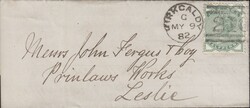 KIRKCALDY
C
MY 9
82
Messrs John Fergus & Coy
Prinlaws Works
Leslie